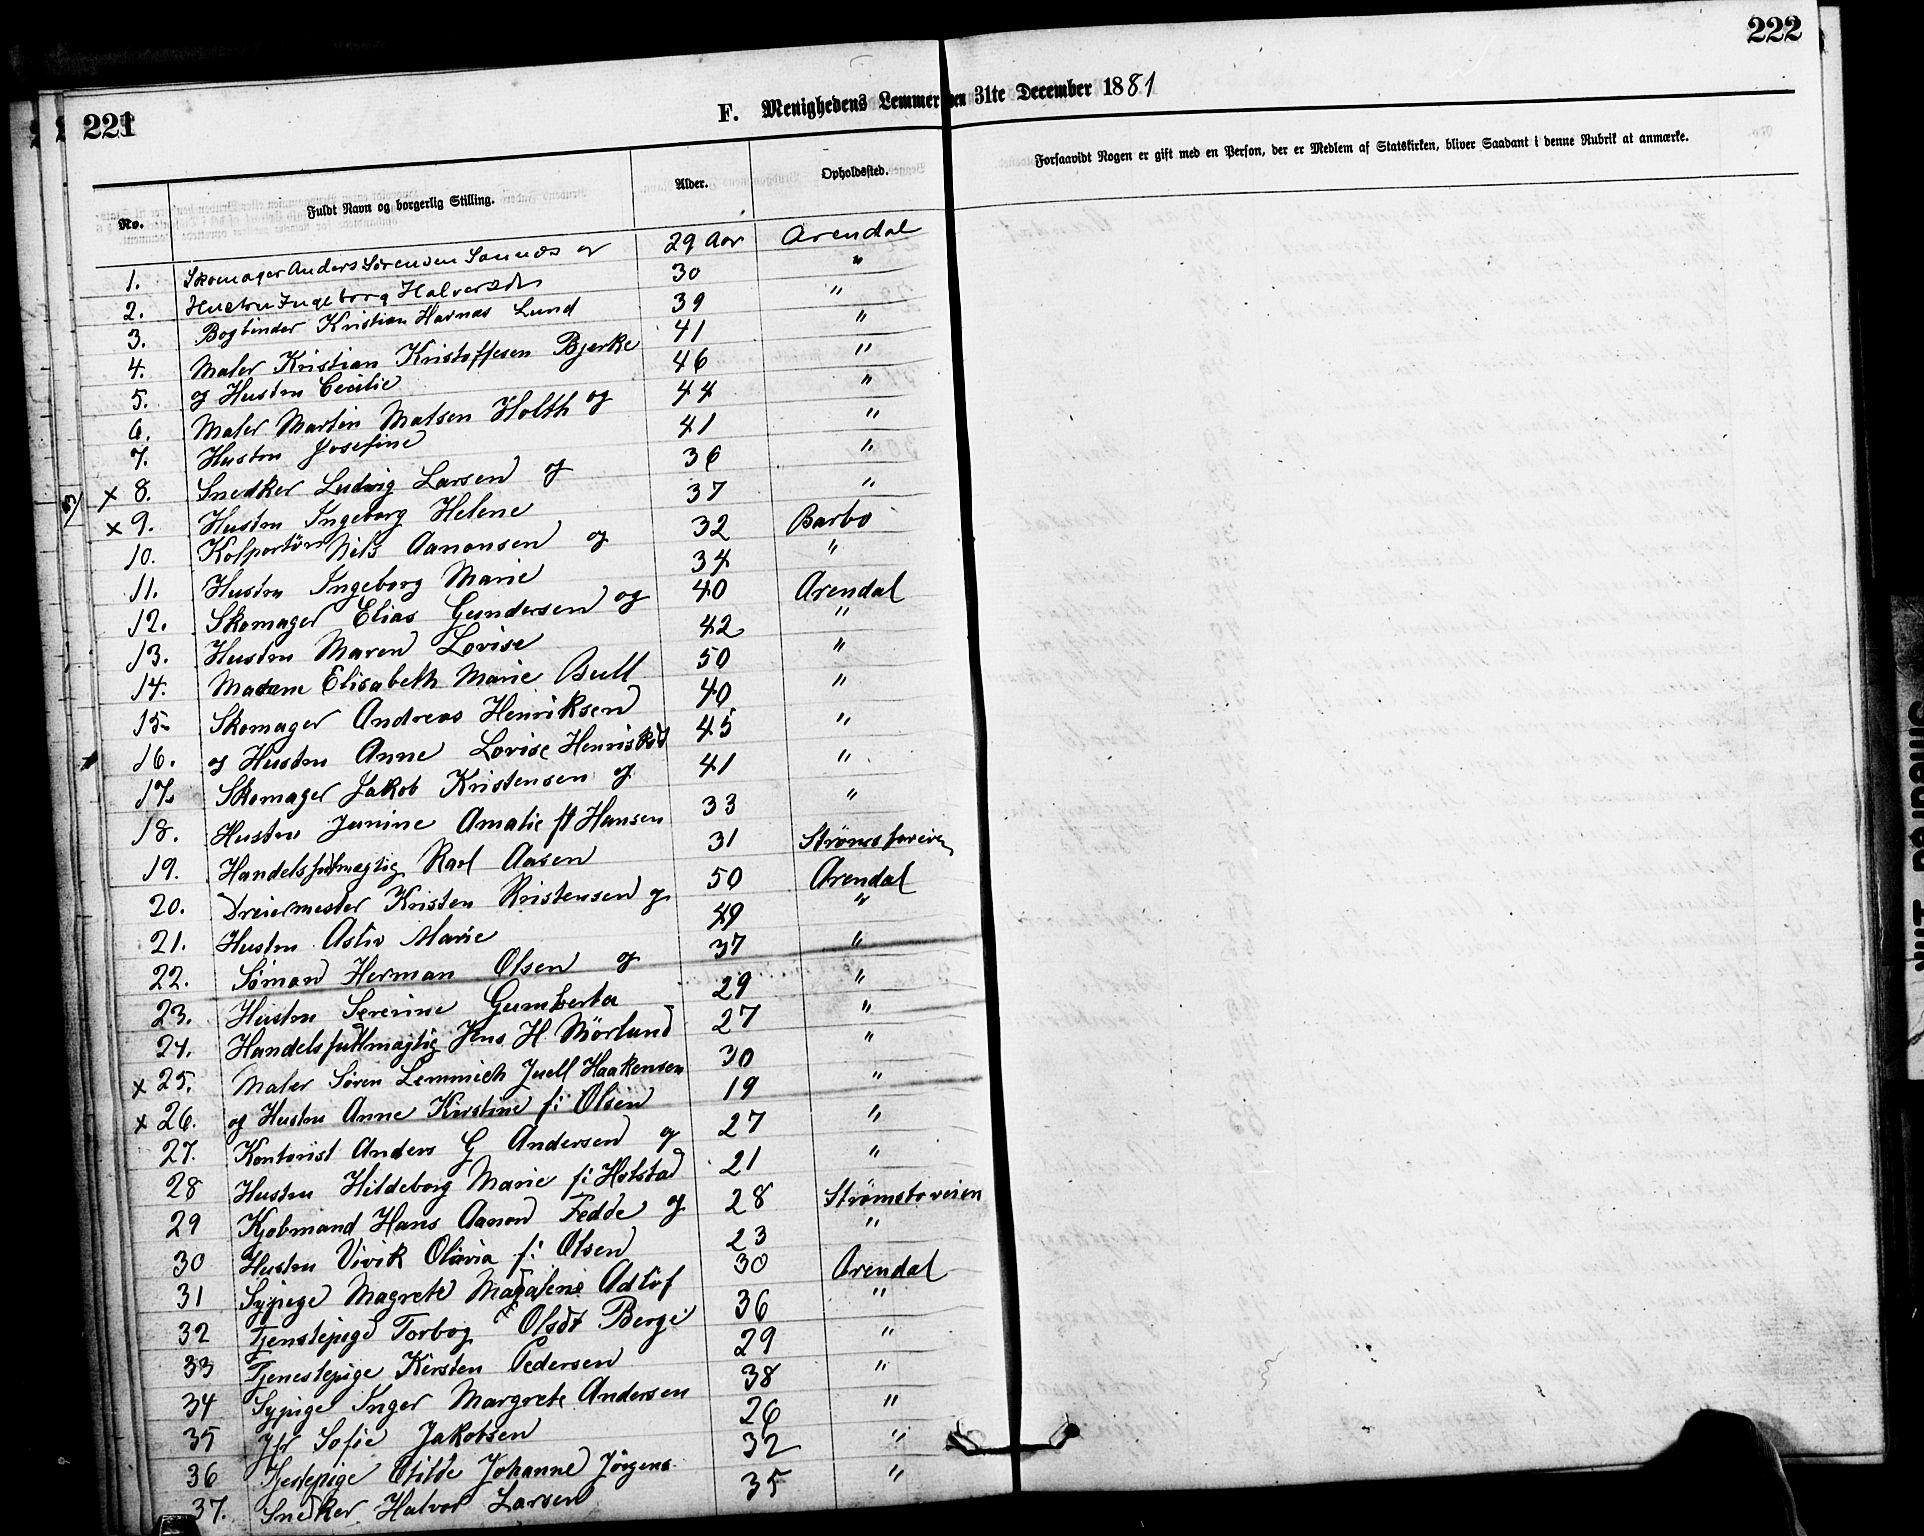 221
222
F. Menighedens Lemmer den 31te December 1881
No.
Fuldt Navn og borgerlig Stilling.
Alder.
Opholdssted.
Forsaavidt Nogen er gift med en Person, der er Medlem af Statskirken, bliver Saadant i denne Rubrik at anmærke.
1. Skomager Anders Sørensen og 29 Aar Arendal
2. Hustru Ingeborg Halversdtr 30 "
3. Bogbinder Kristian Havnas Lund 39 "
4. Maler Kristian Kristoffesen Bjerke 41 "
5. og Hustru Cecilie 46 "
6. Maler Martin Matsen Holth og 44 "
7. Hustru Josefine 41 "
x 8. Snedker Ludvig Larsen og 36 "
x 9. Hustru Ingeborg Helene 37 "
10. Kolportør Nils Aanonsen og 32 Barbo
11. Hustru Ingeborg Marie 34 "
12. Skomager Elias Gundersen og 40 Arendal
13. Hustru Maren Lovise 42 "
14. Madame Elisabeth Marie Bull 50 "
15. Skomager Andreas Henriksen 40 "
16. og Hustru Anne Lovise 45 "
17. Skomager Jakob Kristensen og 41 "
18. Hustru Junine Amalie ft Hansen 33 "
19. Handelsfuldmægtig Karl Aasen 31 Strømsboveien
20. Dreiermester Kristen Kristensen og 50 Arendal
21. Hustru Marie 49 "
22. Sømand Herman Olsen og 37 "
23. Hustru Serenine 29 "
24. Handelsfuldmægtig Jens H. Mörland 27 "
x 25. Maler Søren Lemmich Juell Haakensen 30 "
x 26. og Hustru Anne Kirstine f: Olsen 19 "
27. Kontorist Anders G Andersen og 27 "
28 Hustru Hildeborg Marie f: Holstad 21 "
29 Kjøbmand Hans Aanon Fedde og 28 Strømsboveien
30 Hustru Vivik Olavia f: Olsen 23 "
31 Sypige Magrete Magdalene 30 Arendal
32 Tjenstepige Torbog Olsdt Berge 36 "
33 Tjenestepige Kirsten Pedersen 29 "
34 Sypige Inger Margrete Andersen 38 "
35 Jfr Sofie Jakobsen 26 "
36 Otilde Johanne Jörgens. 32 "
37. Snedker Halvor Larsen 35 "